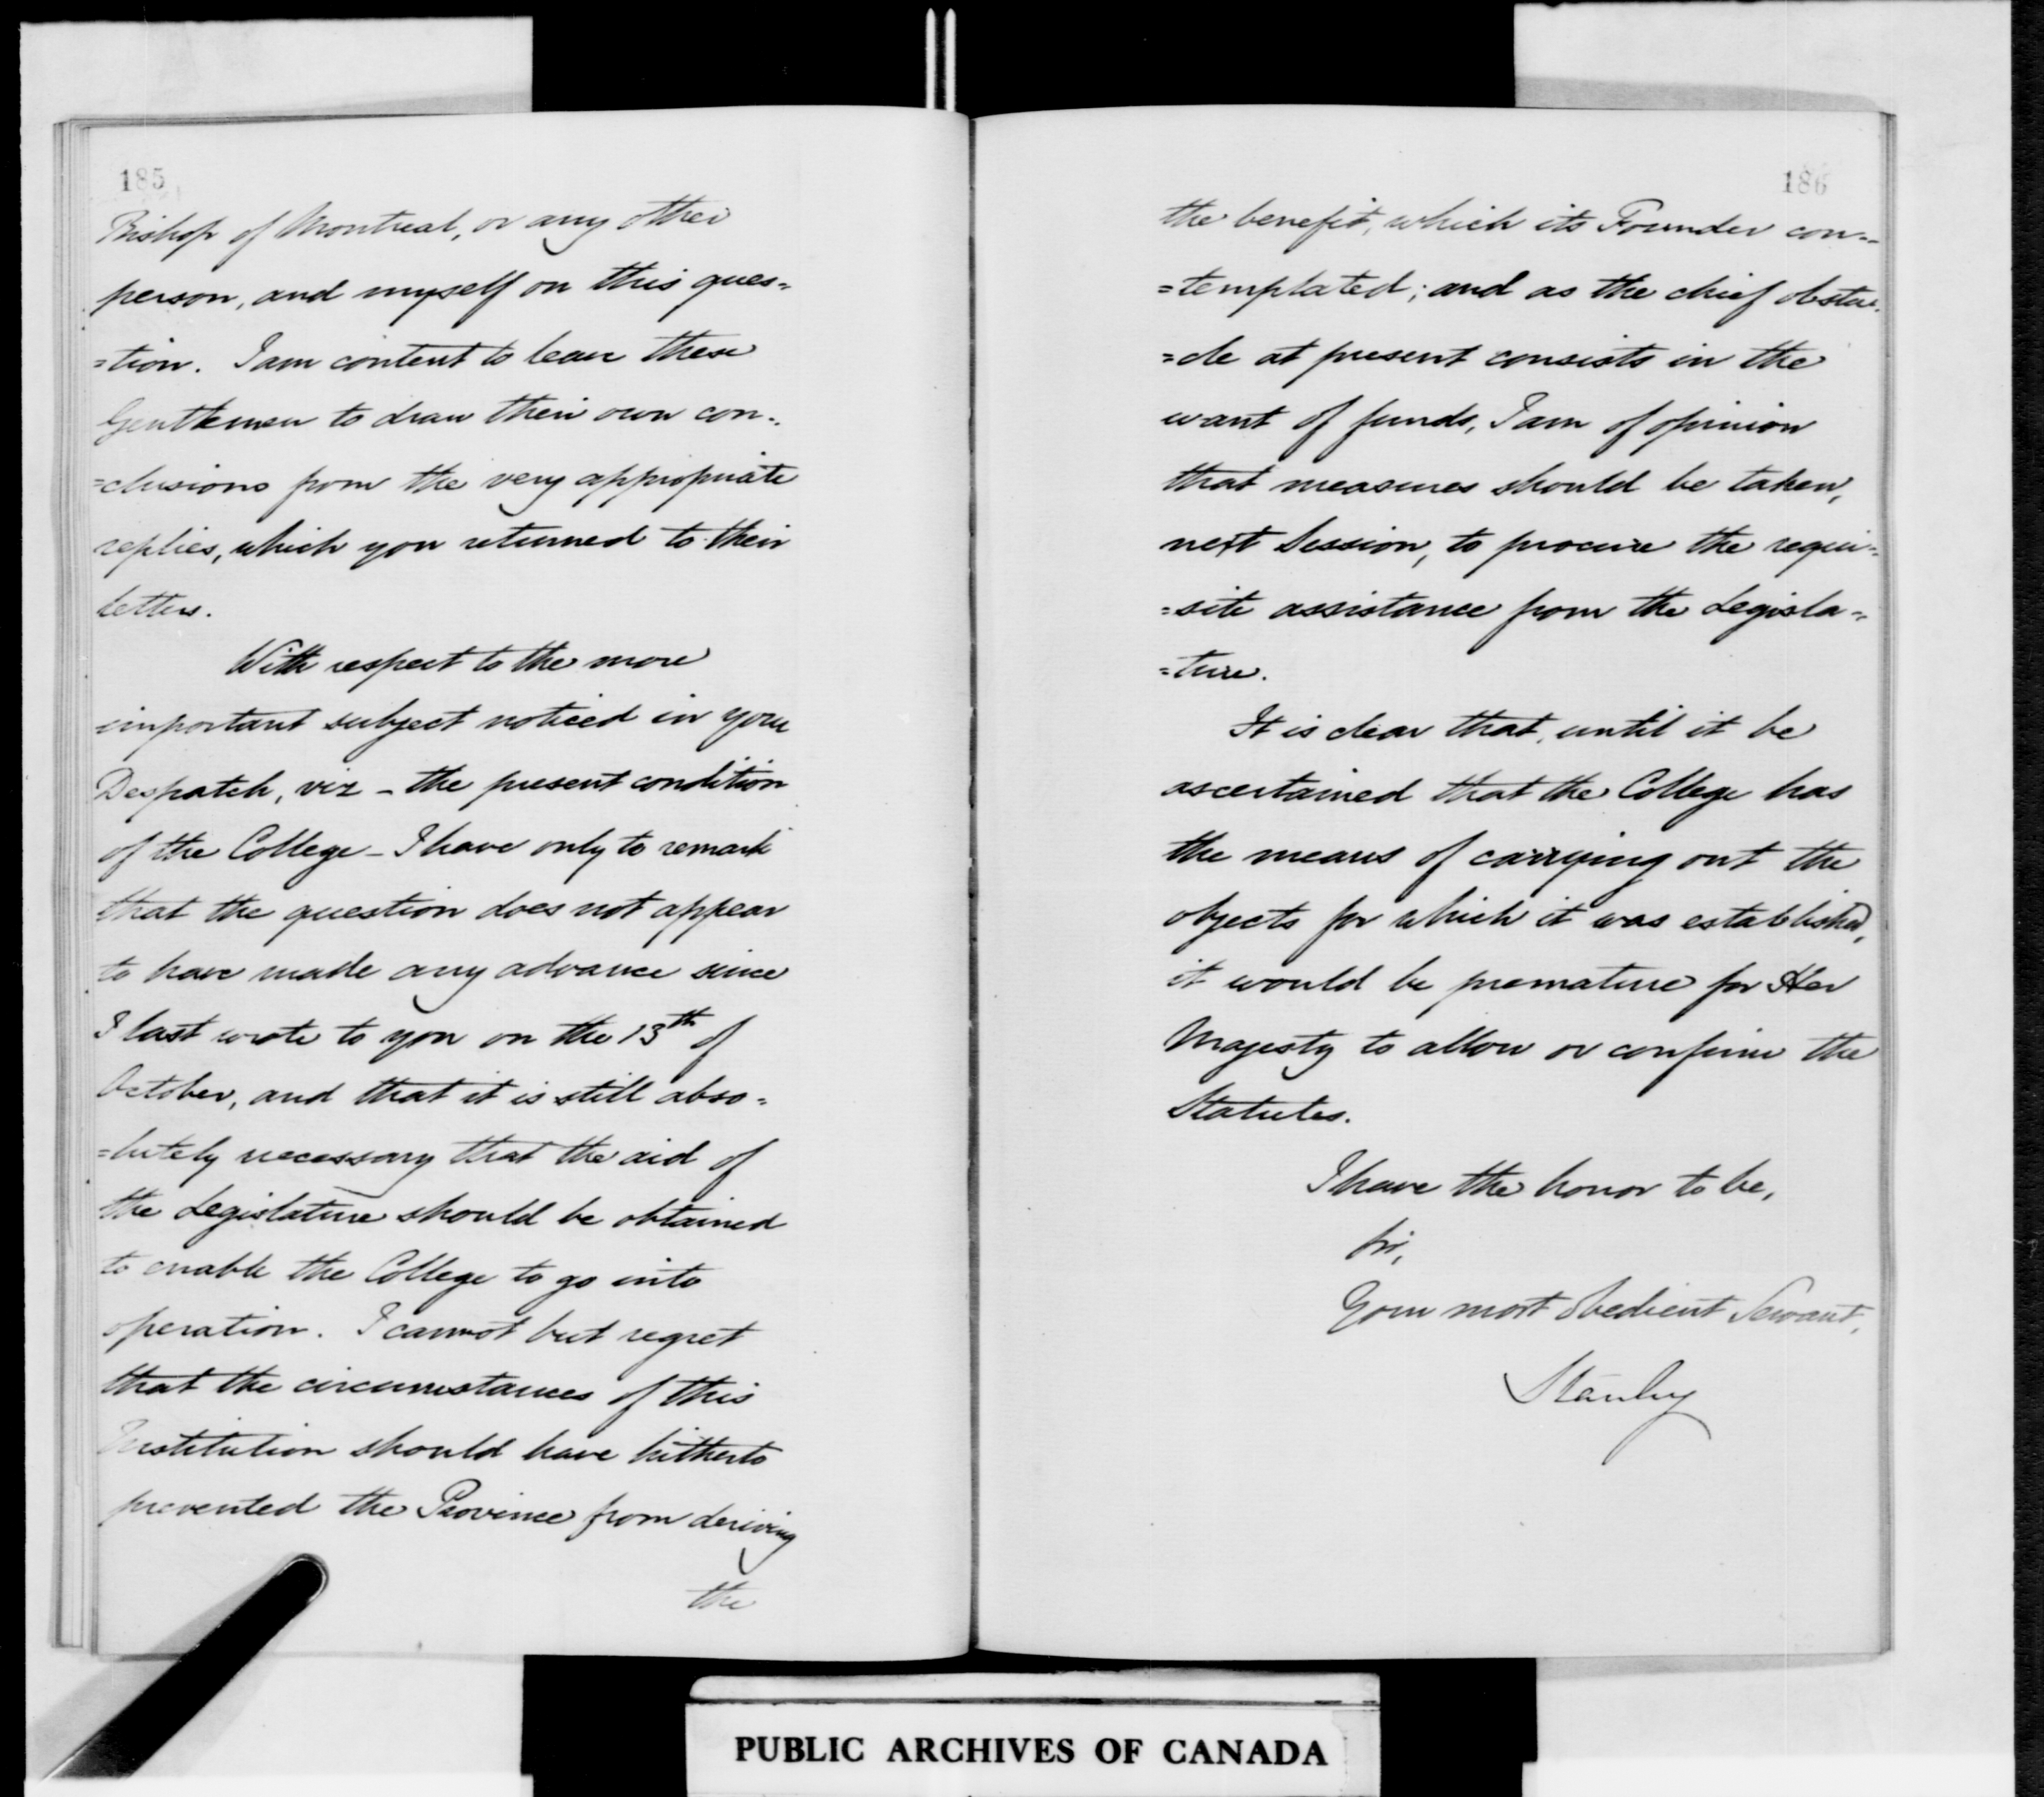 185
Bishop of Montreal, or any other
person, and myself on this ques=
=tion. I am content to leave these
Gentlemen to draw their own con=
=clusions from the very appropriate
replies, which you returned to their
letters.
With respect to the more
important subject noticed in your
Despatch, viz - the present condition
of the College - I have only to remark
that the question does not appear
to have made any advance since
I last wrote to you on the 13th of
October, and that it is still abso=
=lutely necessary that the aid of
the Legislature should be obtained
to enable the College to go into
operation. I cannot but regret
that the circumstances of this
Institution should have hitherto
prevented the Province from deriving
the
186
the benefit, which its Founder con=
=templated; and as the chief obsta=
=cle at present consists in the
want of funds, I am of opinion
that measures should be taken,
next Session, to procure the requi=
=site assistance from the Legisla=
=ture.
It is clear that, until it be
ascertained that the College has
the means of carrying out the
objects for which it was established,
it would be premature for Her
Majesty to allow or confirm the
Statutes.
I have the honor to be,
Sir,
Your most obedient Servant,
Stanley
PUBLIC ARCHIVES OF CANADA